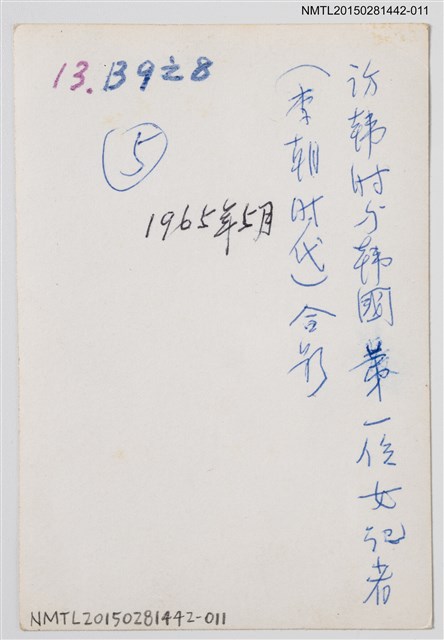 NMTL20150281442-011
13. B9之8
⑤
1965年5月
访韩时与韩國第一位女记者
(李朝时代)合影
NMTL20150281442-011